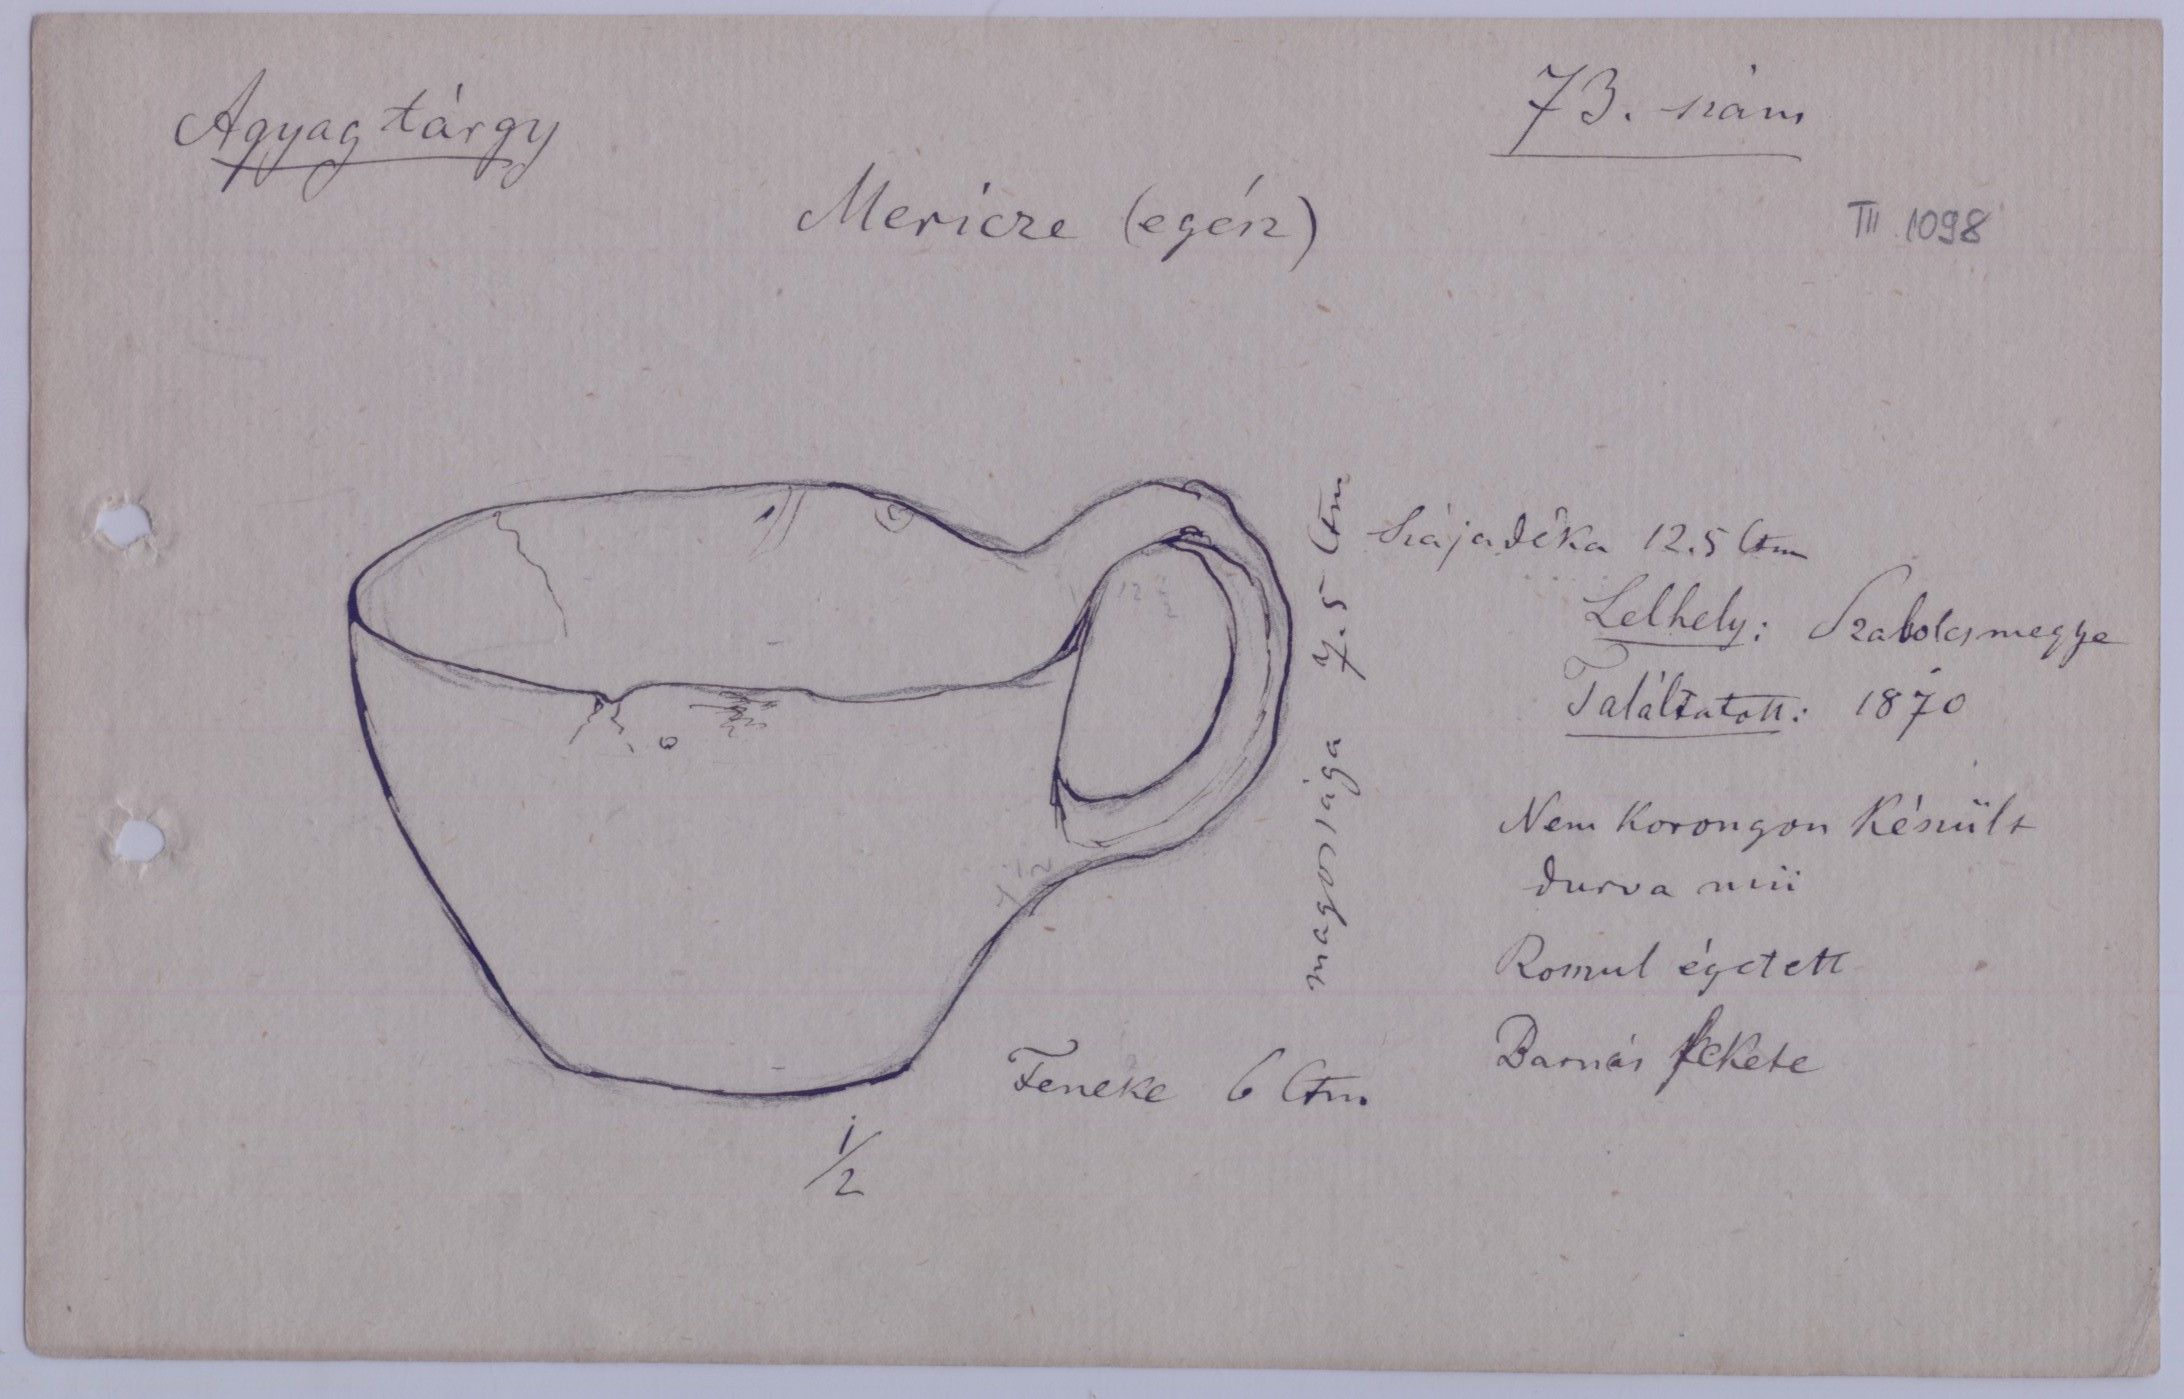 Agyag tárgy
73. szám
Mericze (egész)
III 1098
Szájadéka 12.5 Ctm
magossága 7.5 Ctm
Lelhely: Szabolcsmegye
Találtatott: 1870
Nem korongon készült
durva mű
Rosszul égetett
Barnás fekete
Feneke 6 Ctm.
1/2